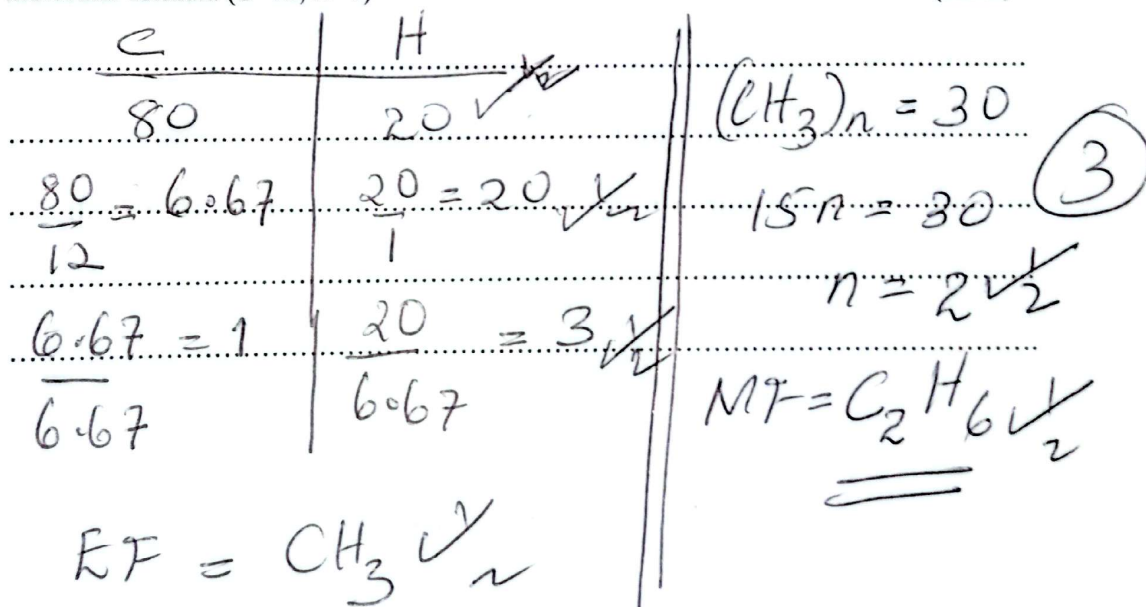 C | H
80 | 20 ✓½
80/12 = 6.67 | 20/1 = 20 ✓½
6.67/6.67 = 1 | 20/6.67 = 3 ✓½
EF = CH₃ ✓½
(CH₃)n = 30
15n = 30
n = 2 ✓½
MF = C₂H₆ ✓½
③